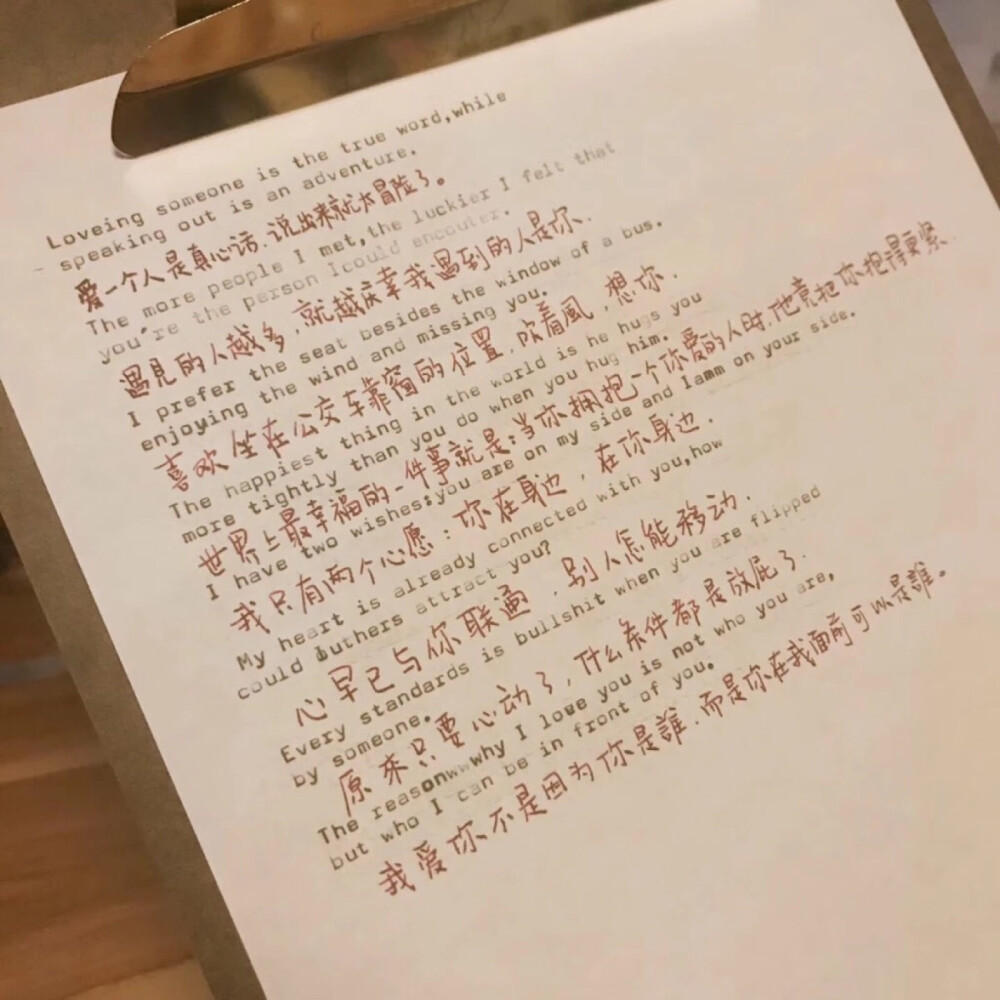 Loveing someone is the true word,while
speaking out is an adventure.
爱一个人是真心话.说出来就太冒险了。
The more people I met,the luckier I felt that
you're the person Icould encouter.
遇見的人越多,就越庆幸我遇到的人是你.
I prefer the seat besides the window of a bus.
enjoying the wind and missing you.
喜欢坐在公交车靠窗的位置,吹着風,想你.
The happiest thing in the world is he hugs you
more tightly than you do when you hug him.
世界上最幸福的一件事就是:当你拥抱一个你爱的人时.他竟把你抱得更紧.
I have two wishes:you are on my side and Iamm on your side.
我只有两个心愿:你在身边,在你身边.
My heart is already connected with you,how
could outhers attract you?
心早已与你联通,别人怎能移动.
Every standards is bullshit when you are flipped
by someone.
原来只要心动了,什么条件都是放屁了.
The reasonwwwhy I love you is not who you are,
but who I can be in front of you.
我爱你不是因为你是誰.而是你在我面前可以是誰。